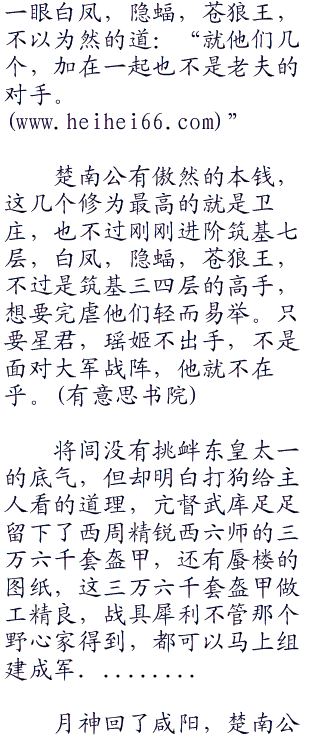 一眼白凤，隐蝠，苍狼王，
不以为然的道：“就他们几
个，加在一起也不是老夫的
对手。
(www.heihei66.com)”
楚南公有傲然的本钱，
这几个修为最高的就是卫
庄，也不过刚刚进阶筑基七
层，白凤，隐蝠，苍狼王，
不过是筑基三四层的高手，
想要完虐他们轻而易举。只
要星君，瑶姬不出手，不是
面对大军战阵，他就不在
乎。(有意思书院)
将闾没有挑衅东皇太一
的底气，但却明白打狗给主
人看的道理，亢督武库足足
留下了西周精锐西六师的三
万六千套盔甲，还有蜃楼的
图纸，这三万六千套盔甲做
工精良，战具犀利不管那个
野心家得到，都可以马上组
建成军．........
月神回了咸阳，楚南公